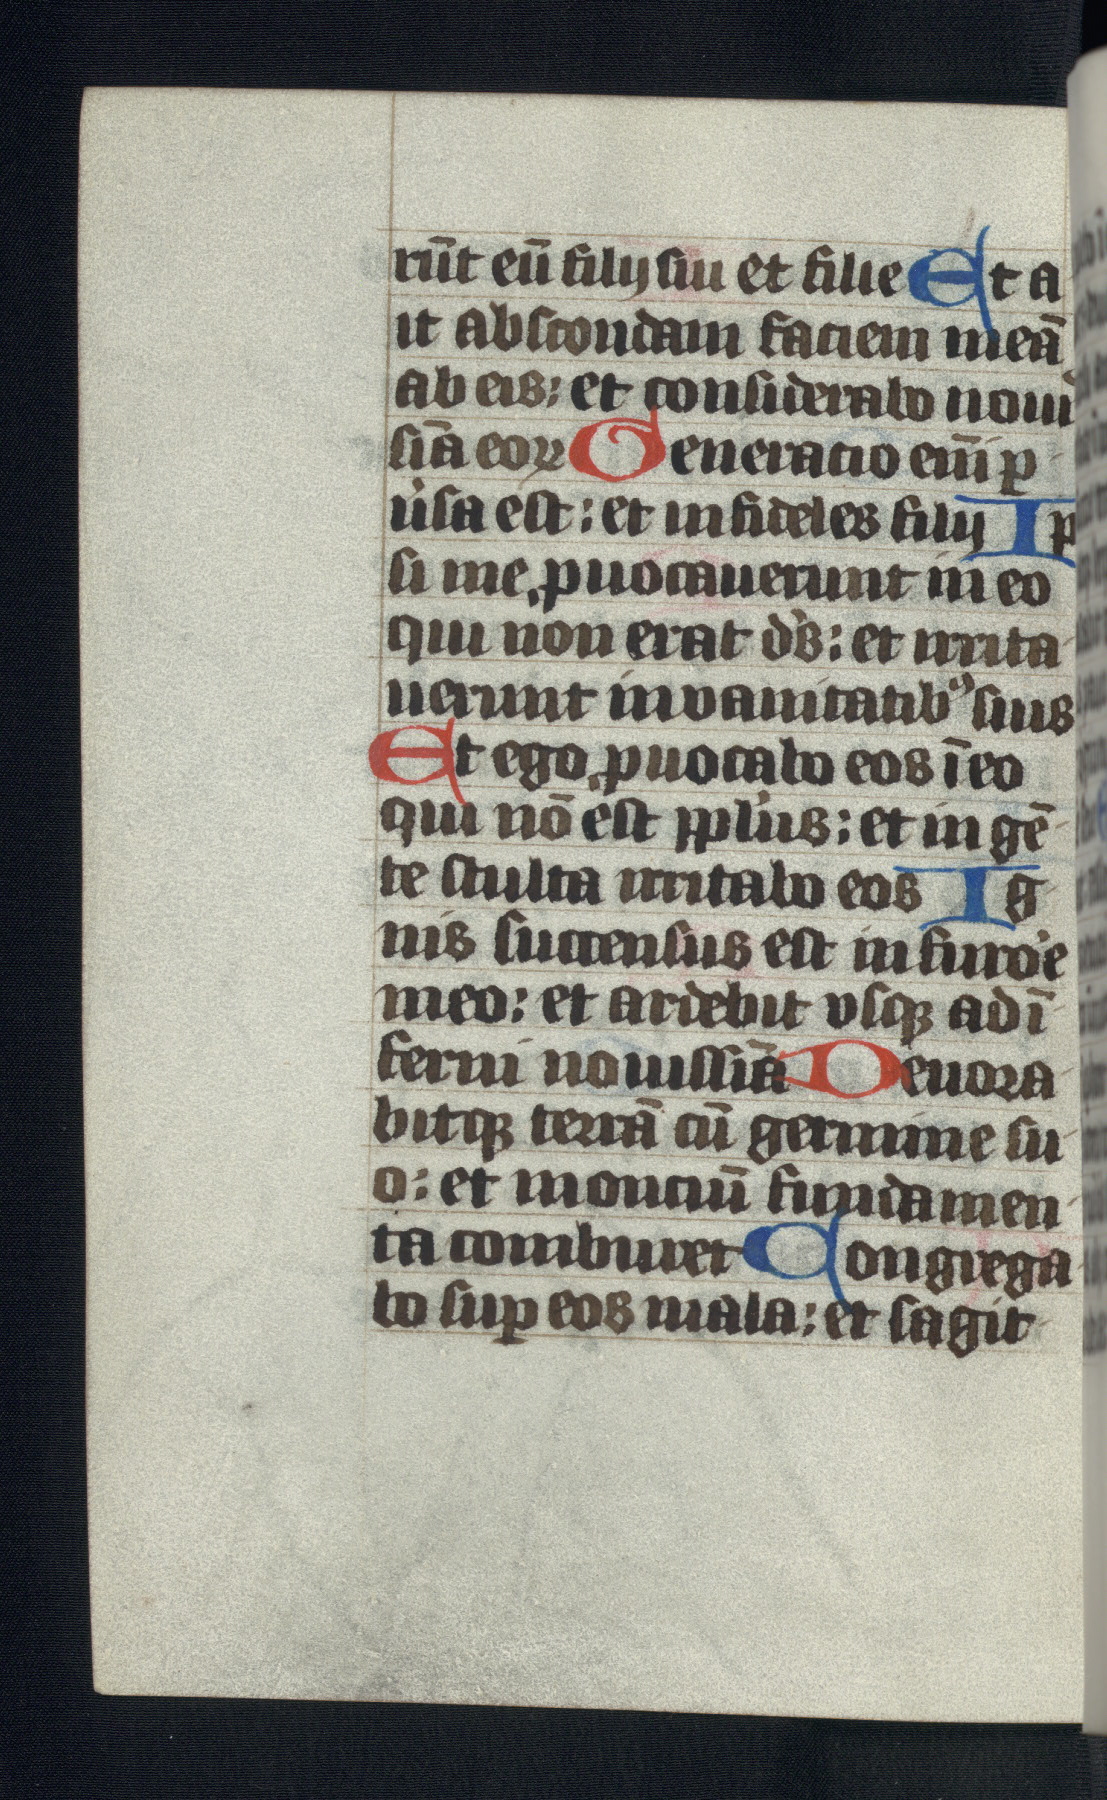 rūt eū filij sui et filie Et a
it abscondam faciem meā
ab eis: et considerabo noui
siā eoꝝ Generacio em̄ ꝑ
u̓sa est: et infideles filij Ip
si me ꝓuocauerunt in eo
qui non erat d's: et irrita
uerunt in vanitatibꝰ suis
Et ego ꝓuocabo eos ī eo
qui nō est ppl'us: et in gē
te stulta irritabo eos Ig
nis succensus est in furo'e
meo: et ardebit vsqꝫ ad ī
ferni nouissīa Deuora
bitqꝫ terrā cū germine su
o: et monciū fundamen
ta comburet Congrega
bo suꝑ eos mala: et sagit